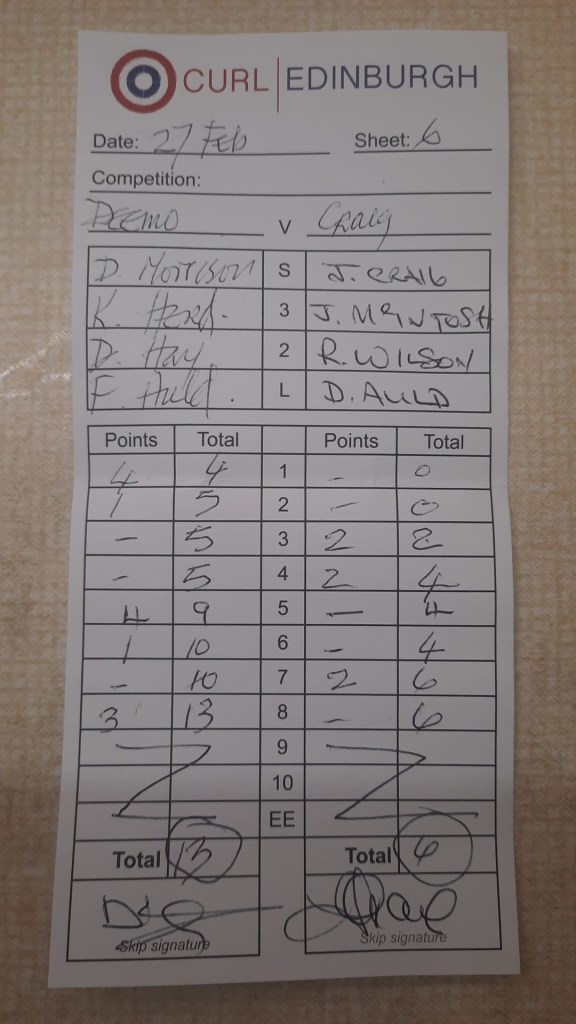 CURL EDINBURGH
Date: 27 Feb Sheet: 6
Competition:
DEEMO V Craig
D. Morrison S J. CRAIG
K. Herd. 3 J. McINTOSH
D. Hay 2 R. WILSON
F. Auld. L D. AULD
Points Total Points Total
4 4 1 - 0
1 5 2 - 0
- 5 3 2 2
- 5 4 2 4
4 9 5 - 4
1 10 6 - 4
- 10 7 2 6
3 13 8 - 6
9
10
EE
Total 13 Total 6
Skip signature Skip signature